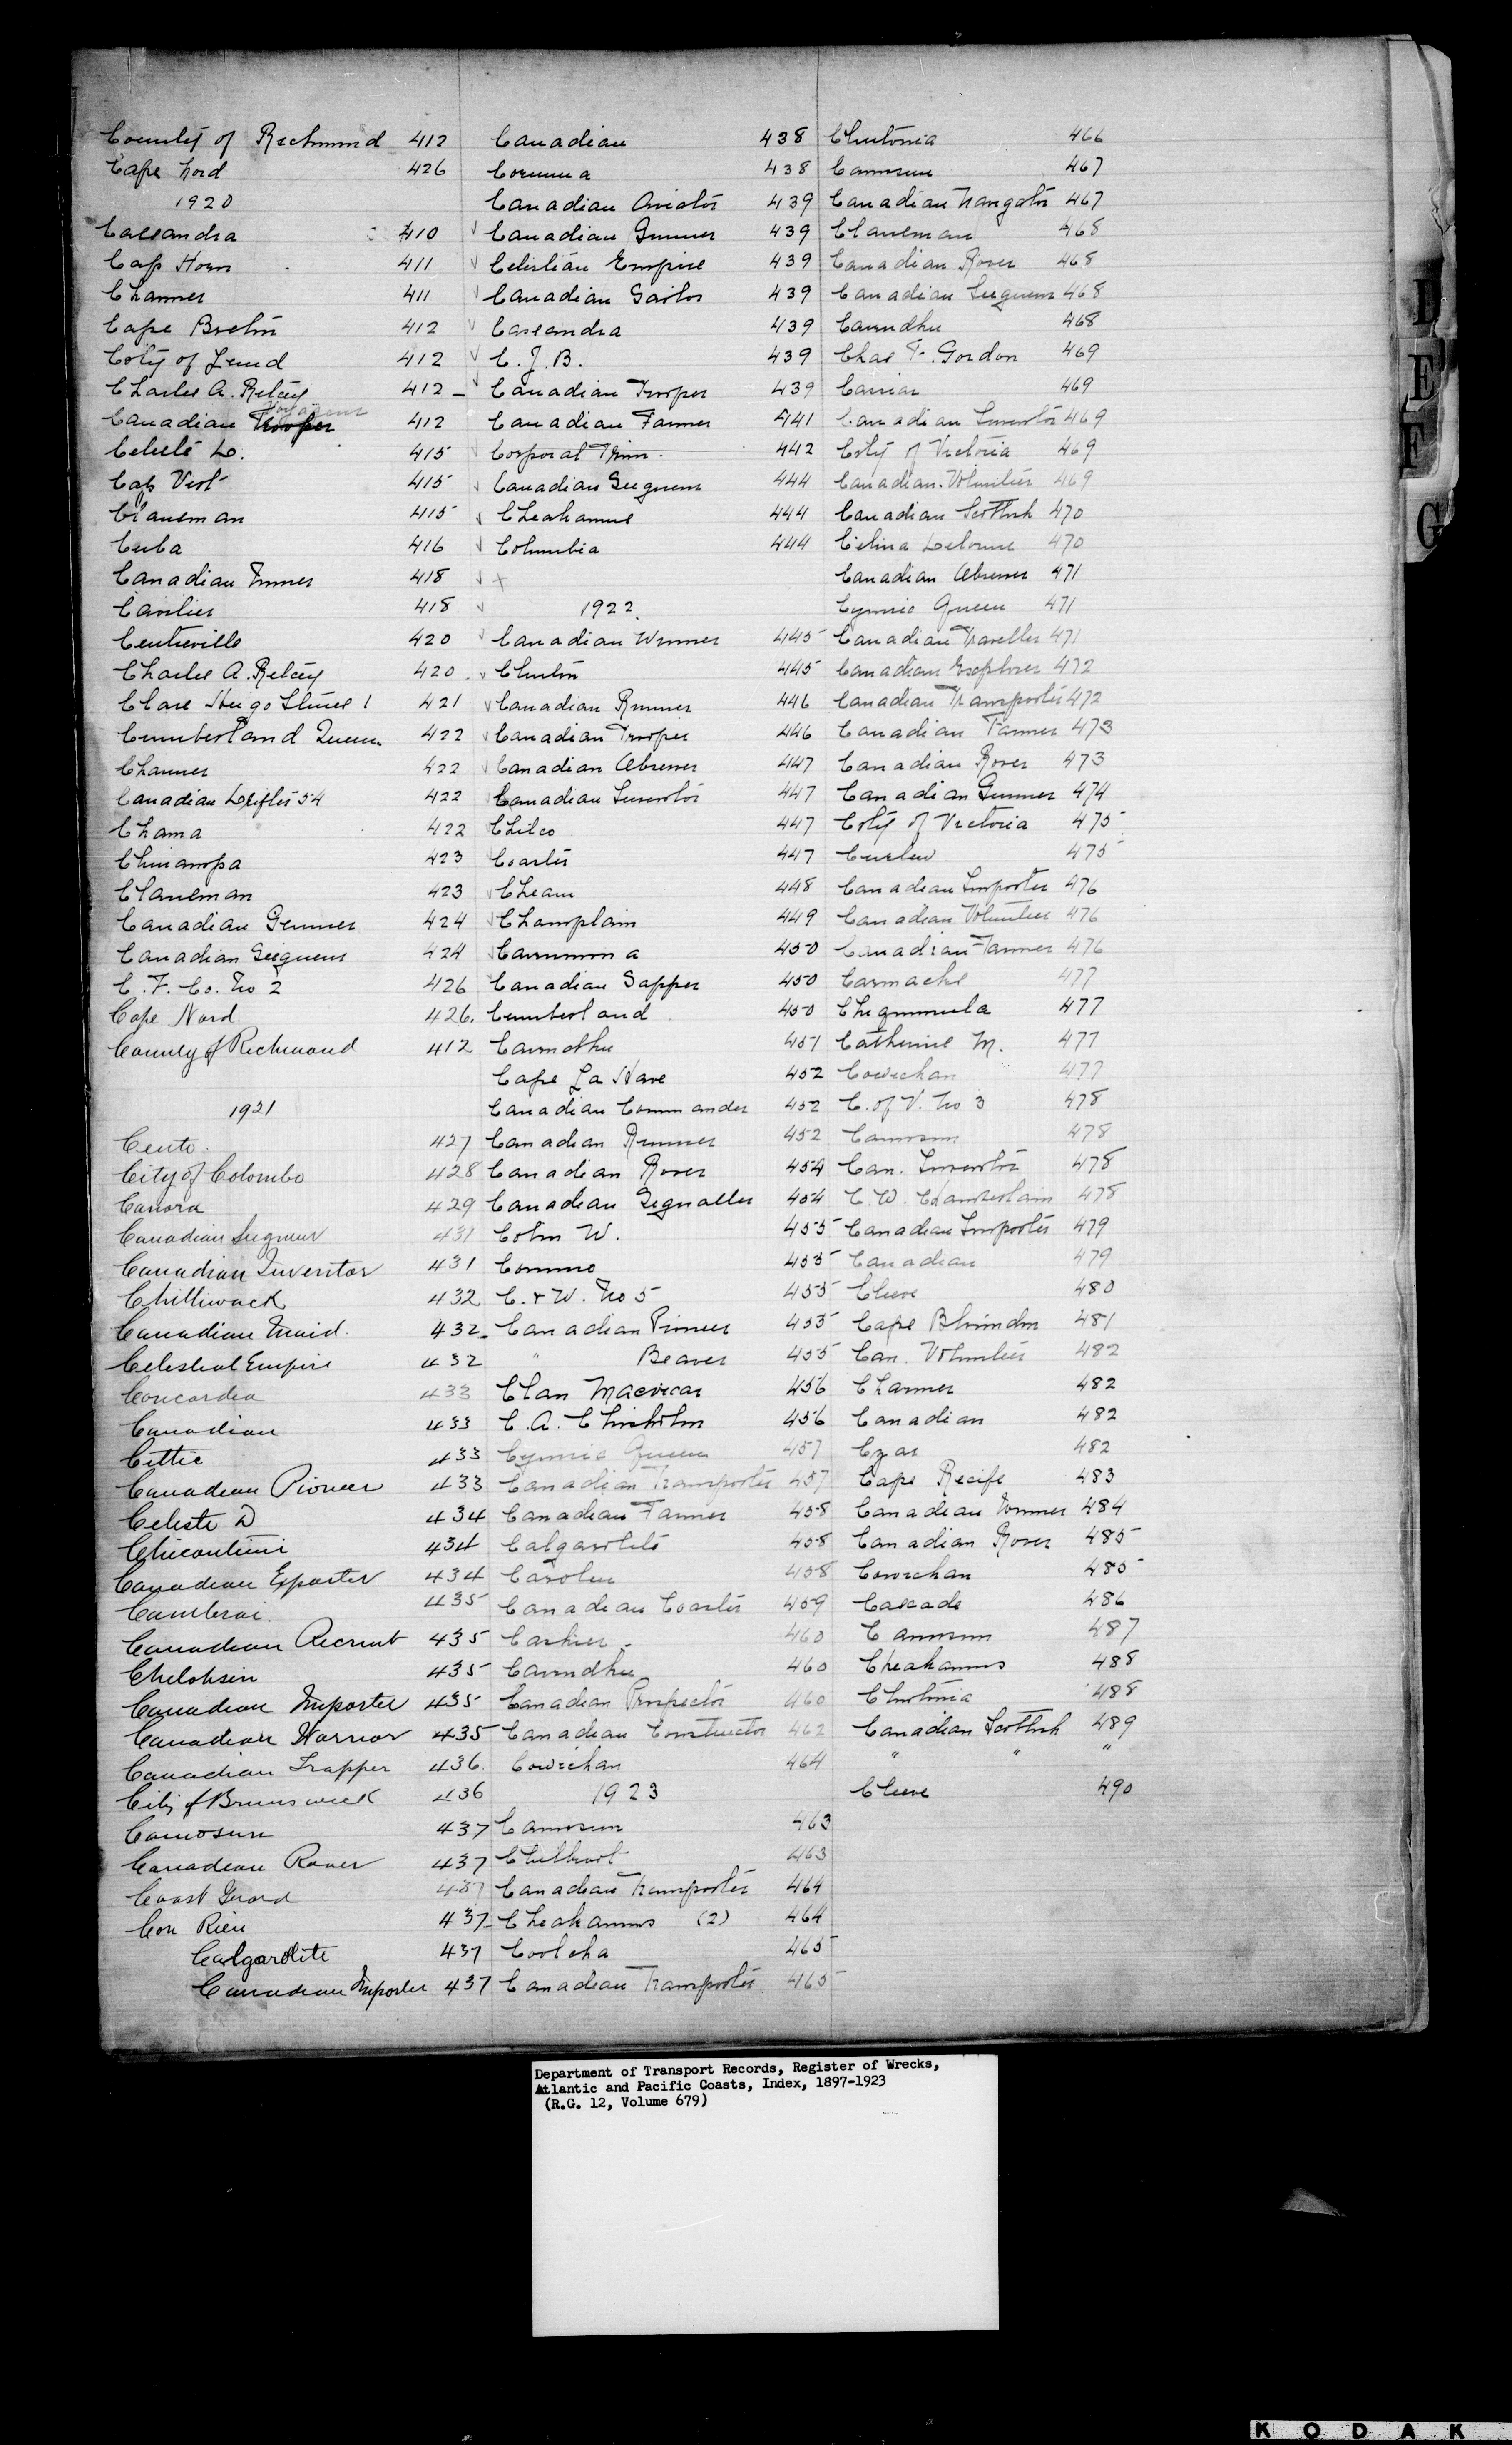 County of Richmond 412
Cape Nord 426
1920
Cassandra 410
Cap Horn 411
Charmer 411
Cape Breton 412
City of Gend 412
Charles A. Ritcey 412
Voyageur
Canadian Trooper 412
Celeste D. 415
Cap Vert 415
Clansman 415
Cuba 416
Canadian 418
Cavilier 418
Centreville 420
Charles A. Ritcey 420
Clare Hugo Stines 1 421
Cumberland Queen 422
Charmer 422
Canadian Drifter 54 422
Chama 422
423
Clansman 423
Canadian Gunner 424
Canadian Seigneur 424
C. F. Co. No 2 426
Cape Nord 426.
County of Richmond 412
1921
Cento. 427
City of Colombo 428
Canora 429
Canadian Seigneur 431
Canadian Inventor 431
Chilliwack 432
Canadian Maid. 432
Celestial Empire 432
Concordia 433
Canadian 433
Cittie 433
Canadian Pioneer 433
Celeste D 434
Chicoutimi 434
Canadian Exporter 434
Cambrai. 435
Canadian Recruit 435
Chelohsin 435
Canadian Importer 435
Canadian Warrior 435
Canadian Trapper 436.
City of Brunswick 436
Camosun 437
Canadian Rover 437
Coast Guard 437
Con Rien 437
Calgarolite 437
Canadian Importer 437
Canadian 438
Corunna 438
Canadian Aviator 439
Canadian Gunner 439
Celestian Empire 439
Canadian Sailor 439
Cassandra 439
C. J. B. 439
Canadian Trooper 439
Canadian Farmer 441
Corporal Trim. 442
Canadian Seigneur 444
Cheakamus 444
Columbia 444
x
1922.
Canadian Winner 445
Clinton 445
Canadian Runner 446
Canadian Trooper 446
Canadian Observer 447
Canadian Inventor 447
Chilco 447
Coaster 447
Cheam 448
Champlain 449
450
Canadian Sapper 450
Cumberland 450
451
Cape La Have 452
Canadian Commander 452
Canadian Runner 452
Canadian Rover 454
Canadian Signaller 454
Colin W. 455
455
C. & W. No 5 455
Canadian Pioneer 455
" Beaver 455
Clan Macvicar 456
C. A. Chisholm 456
Cymric Queen 457
Canadian Transporter 457
Canadian Farmer 458
Calgarolite 458
458
Canadian Coaster 459
Cashier. 460
Cairndhu 460
Canadian Prospector 460
Canadian Constructor 462
Cowichan 464
1923
Camosun 463
Chilkoot 463
Canadian Transporter 464
Cheakamus (2) 464
Cooloha 465
Canadian Transporter 465
466
Camosun 467
Canadian Navigator 467
Clansman 468
Canadian Rover 468
Canadian Seigneur 468
Cairndhu 468
Chas F. Gordon 469
Carriar 469
Canadian Inventor 469
City of Victoria 469
Canadian Volunteer 469
Canadian Scottish 470
Celina Delorme 470
Canadian Observer 471
Cymric Queen 471
Canadian Traveller 471
Canadian Explorer 472
Canadian Transporter 472
Canadian Farmer 473
Canadian Rover 473
Canadian Gunner 474
City of Victoria 475
Curlew 475
Canadian Importer 476
Canadian Volunteer 476
Canadian Farmer 476
Carmache 477
477
Catherine M. 477
Cowichan 477
C. of V. No 3 478
Camosun 478
Can. Inventor 478
C. W. Chamberlain 478
Canadian Importer 479
Canadian 479
Cleeve 480
Cape Blomidon 481
Can. Volunteer 482
Charmer 482
Canadian 482
Czar 482
Cape Recife 483
Canadian 484
Canadian Rover 485
Cowichan 485
Cascade 486
Camosun 487
Cheakamus 488
488
Canadian Scottish 489
" " "
Cleeve 490
D
E
F
G
Department of Transport Records, Register of Wrecks,
Atlantic and Pacific Coasts, Index, 1897-1923
(R.G. 12, Volume 679)
KODAK